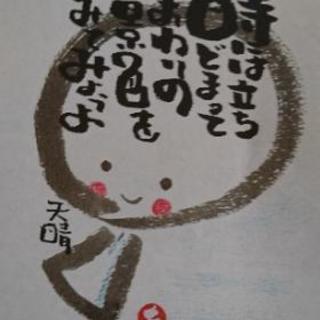 時には立ち
どまって
まわりの
景色を
みてみようよ
天晴